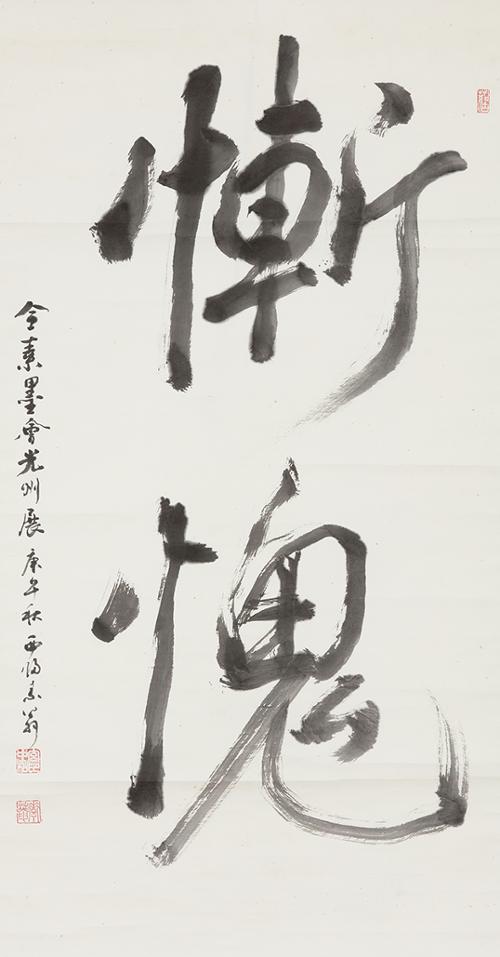 慚愧
全素墨會光州展 庚午秋 西 素翁